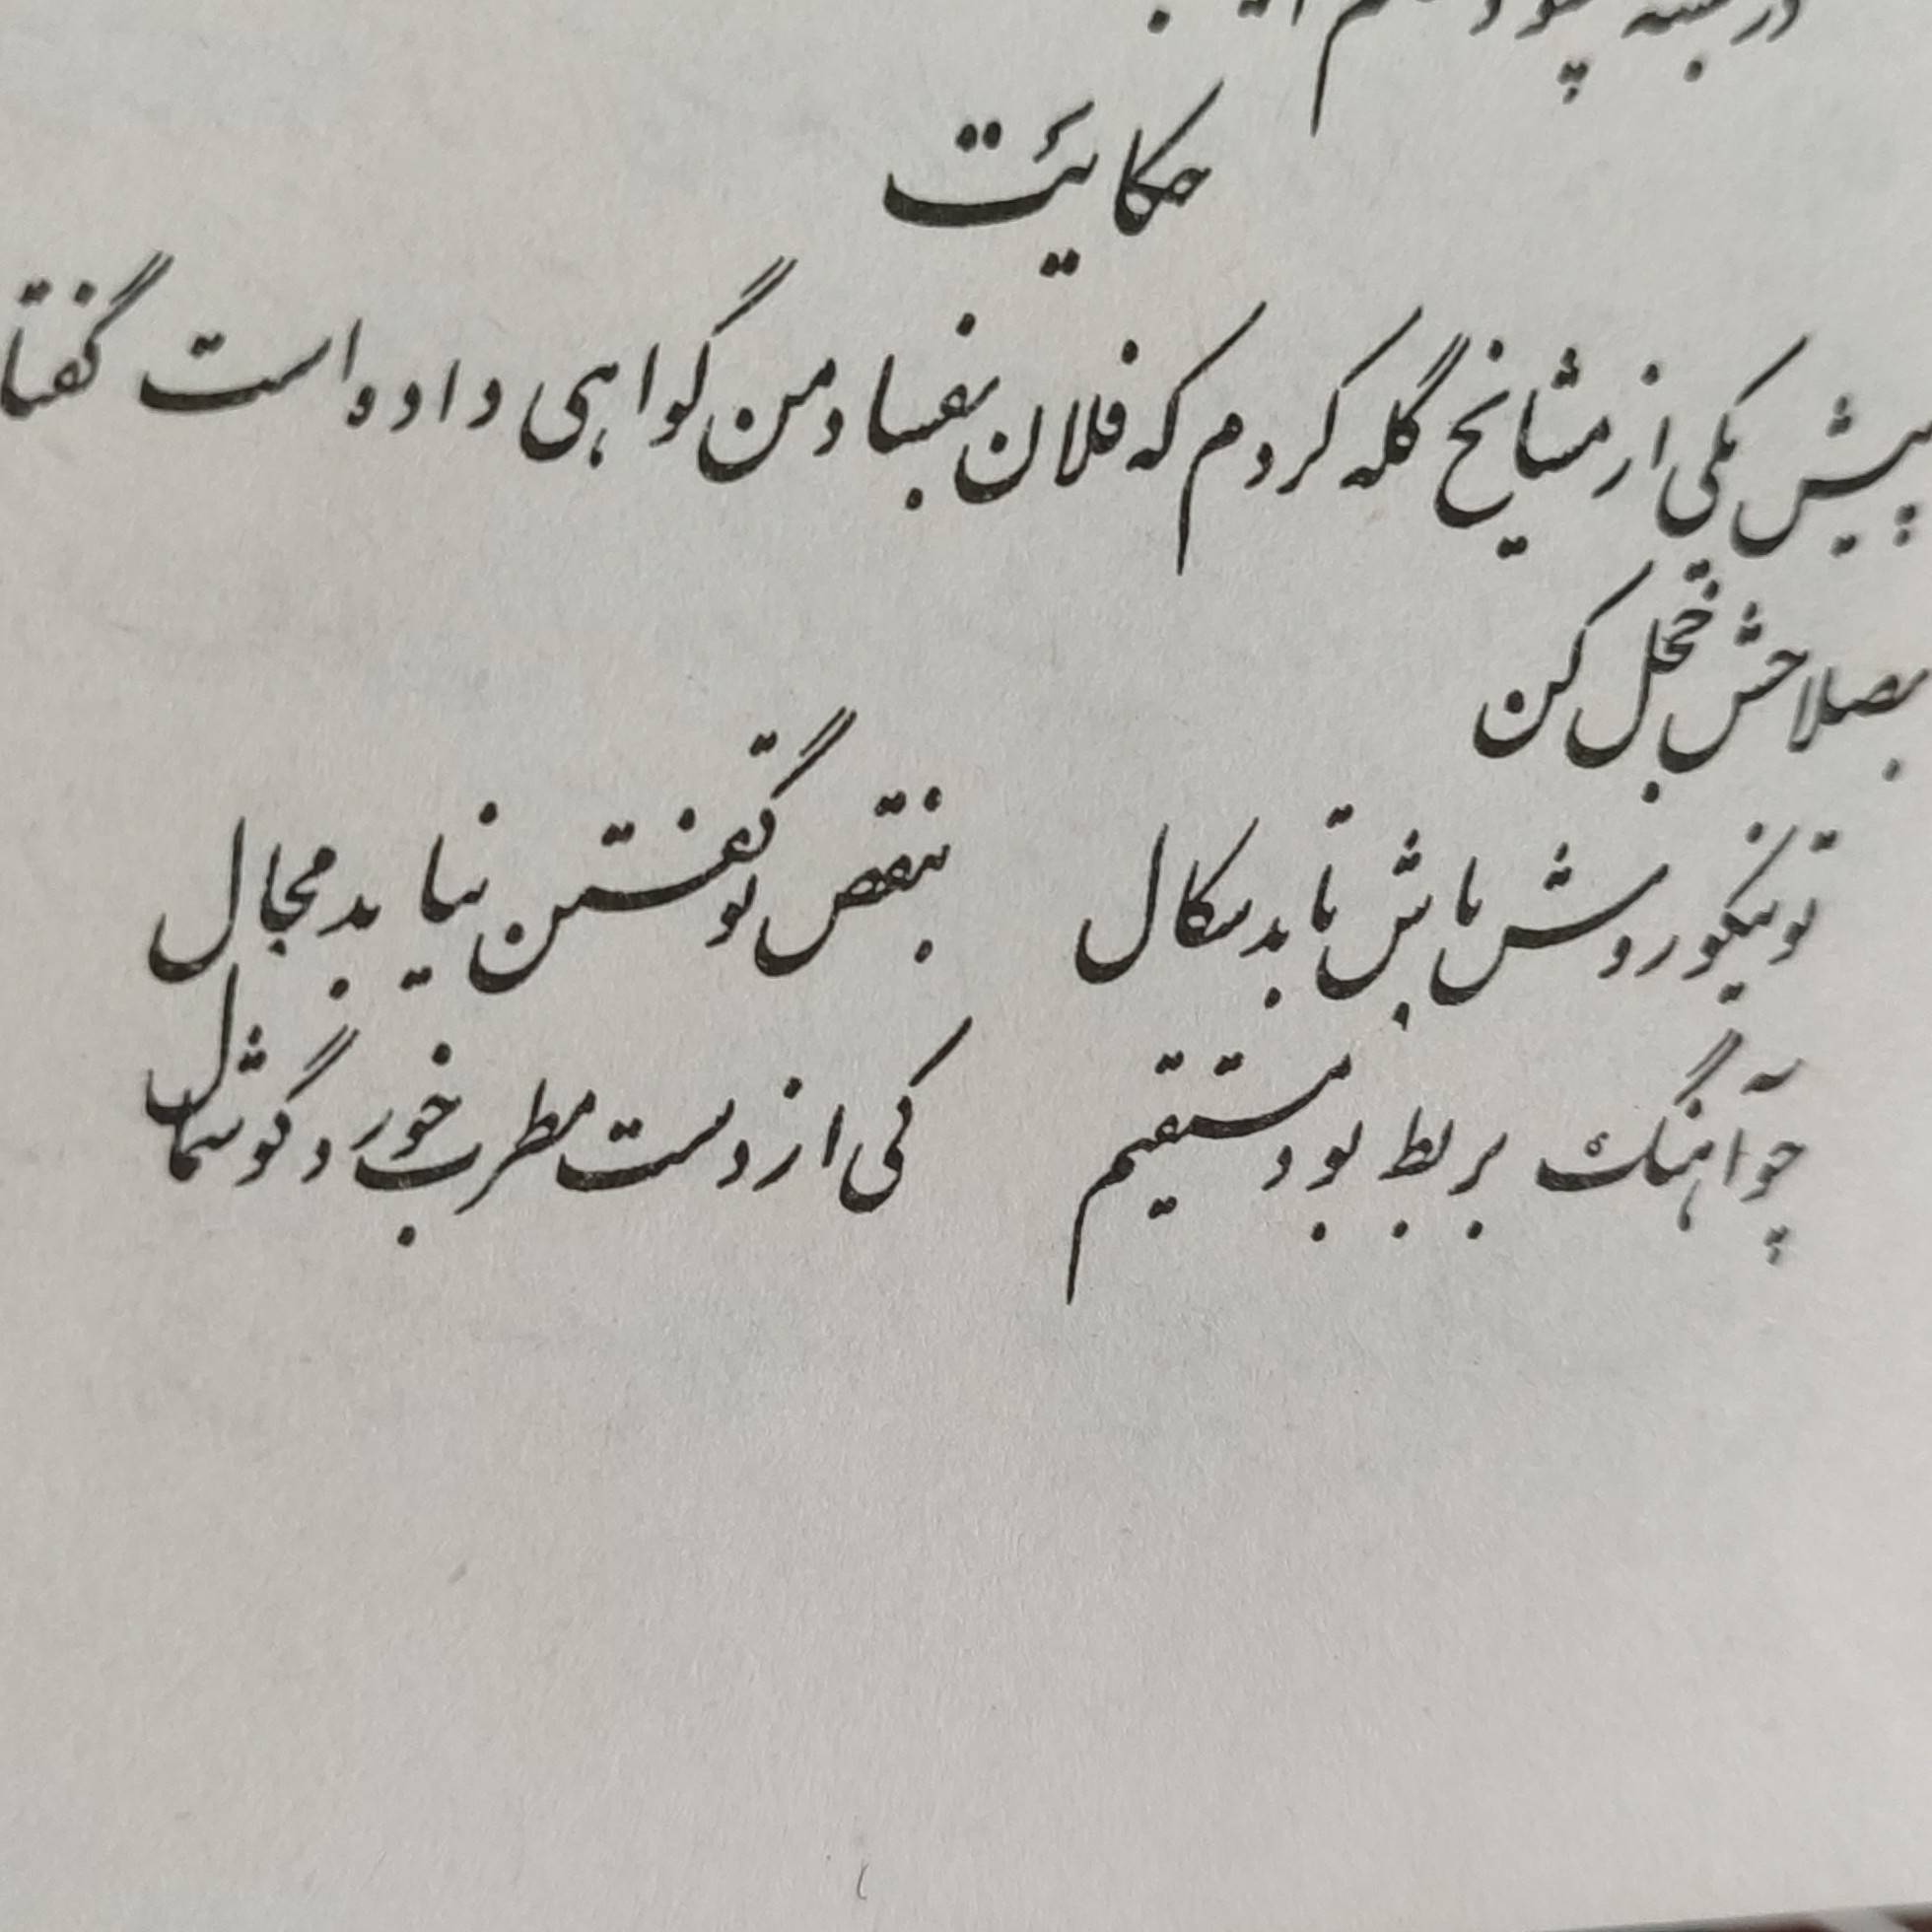 حکایت
پیش یکی از مشایخ گله کردم که فلان بفساد من گواهی داده است گفتا
بصلاحش خجل کن
تو نیکو روش باش تا بدسگال بنقص تو گفتن نیابد مجال
چو آهنگ بربط بود مستقیم کی از دست مطرب خورد گوشمال